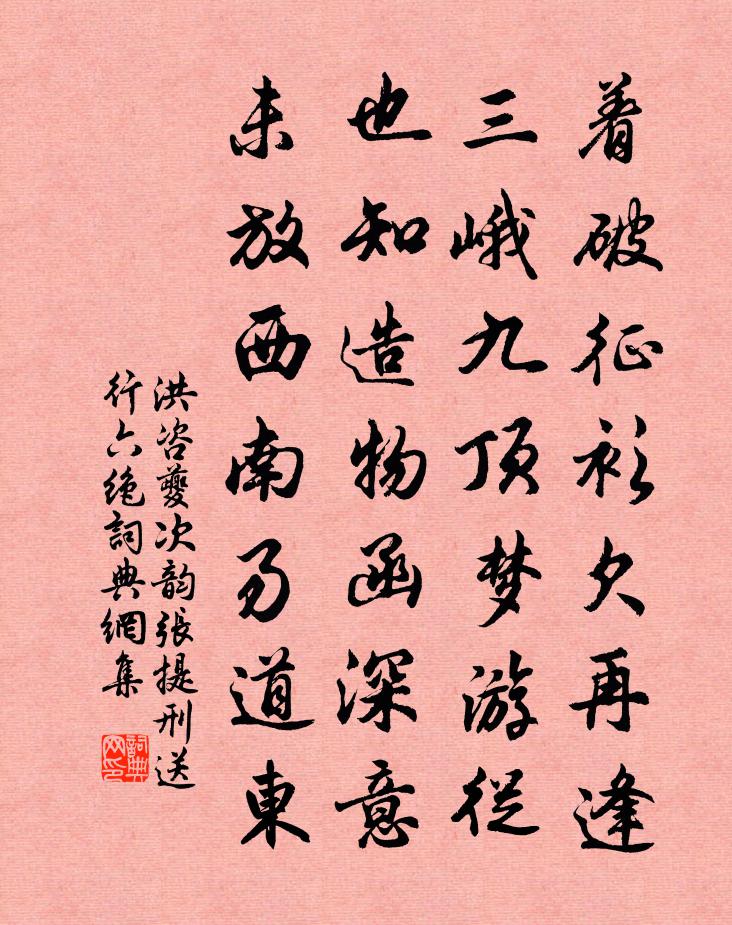 着破征衫久再逢
三峨九顶梦游從
也知造物函深意
未放西南易道東
洪咨夔次韵張提刑送
行六绝詞典網集
詞典
网印